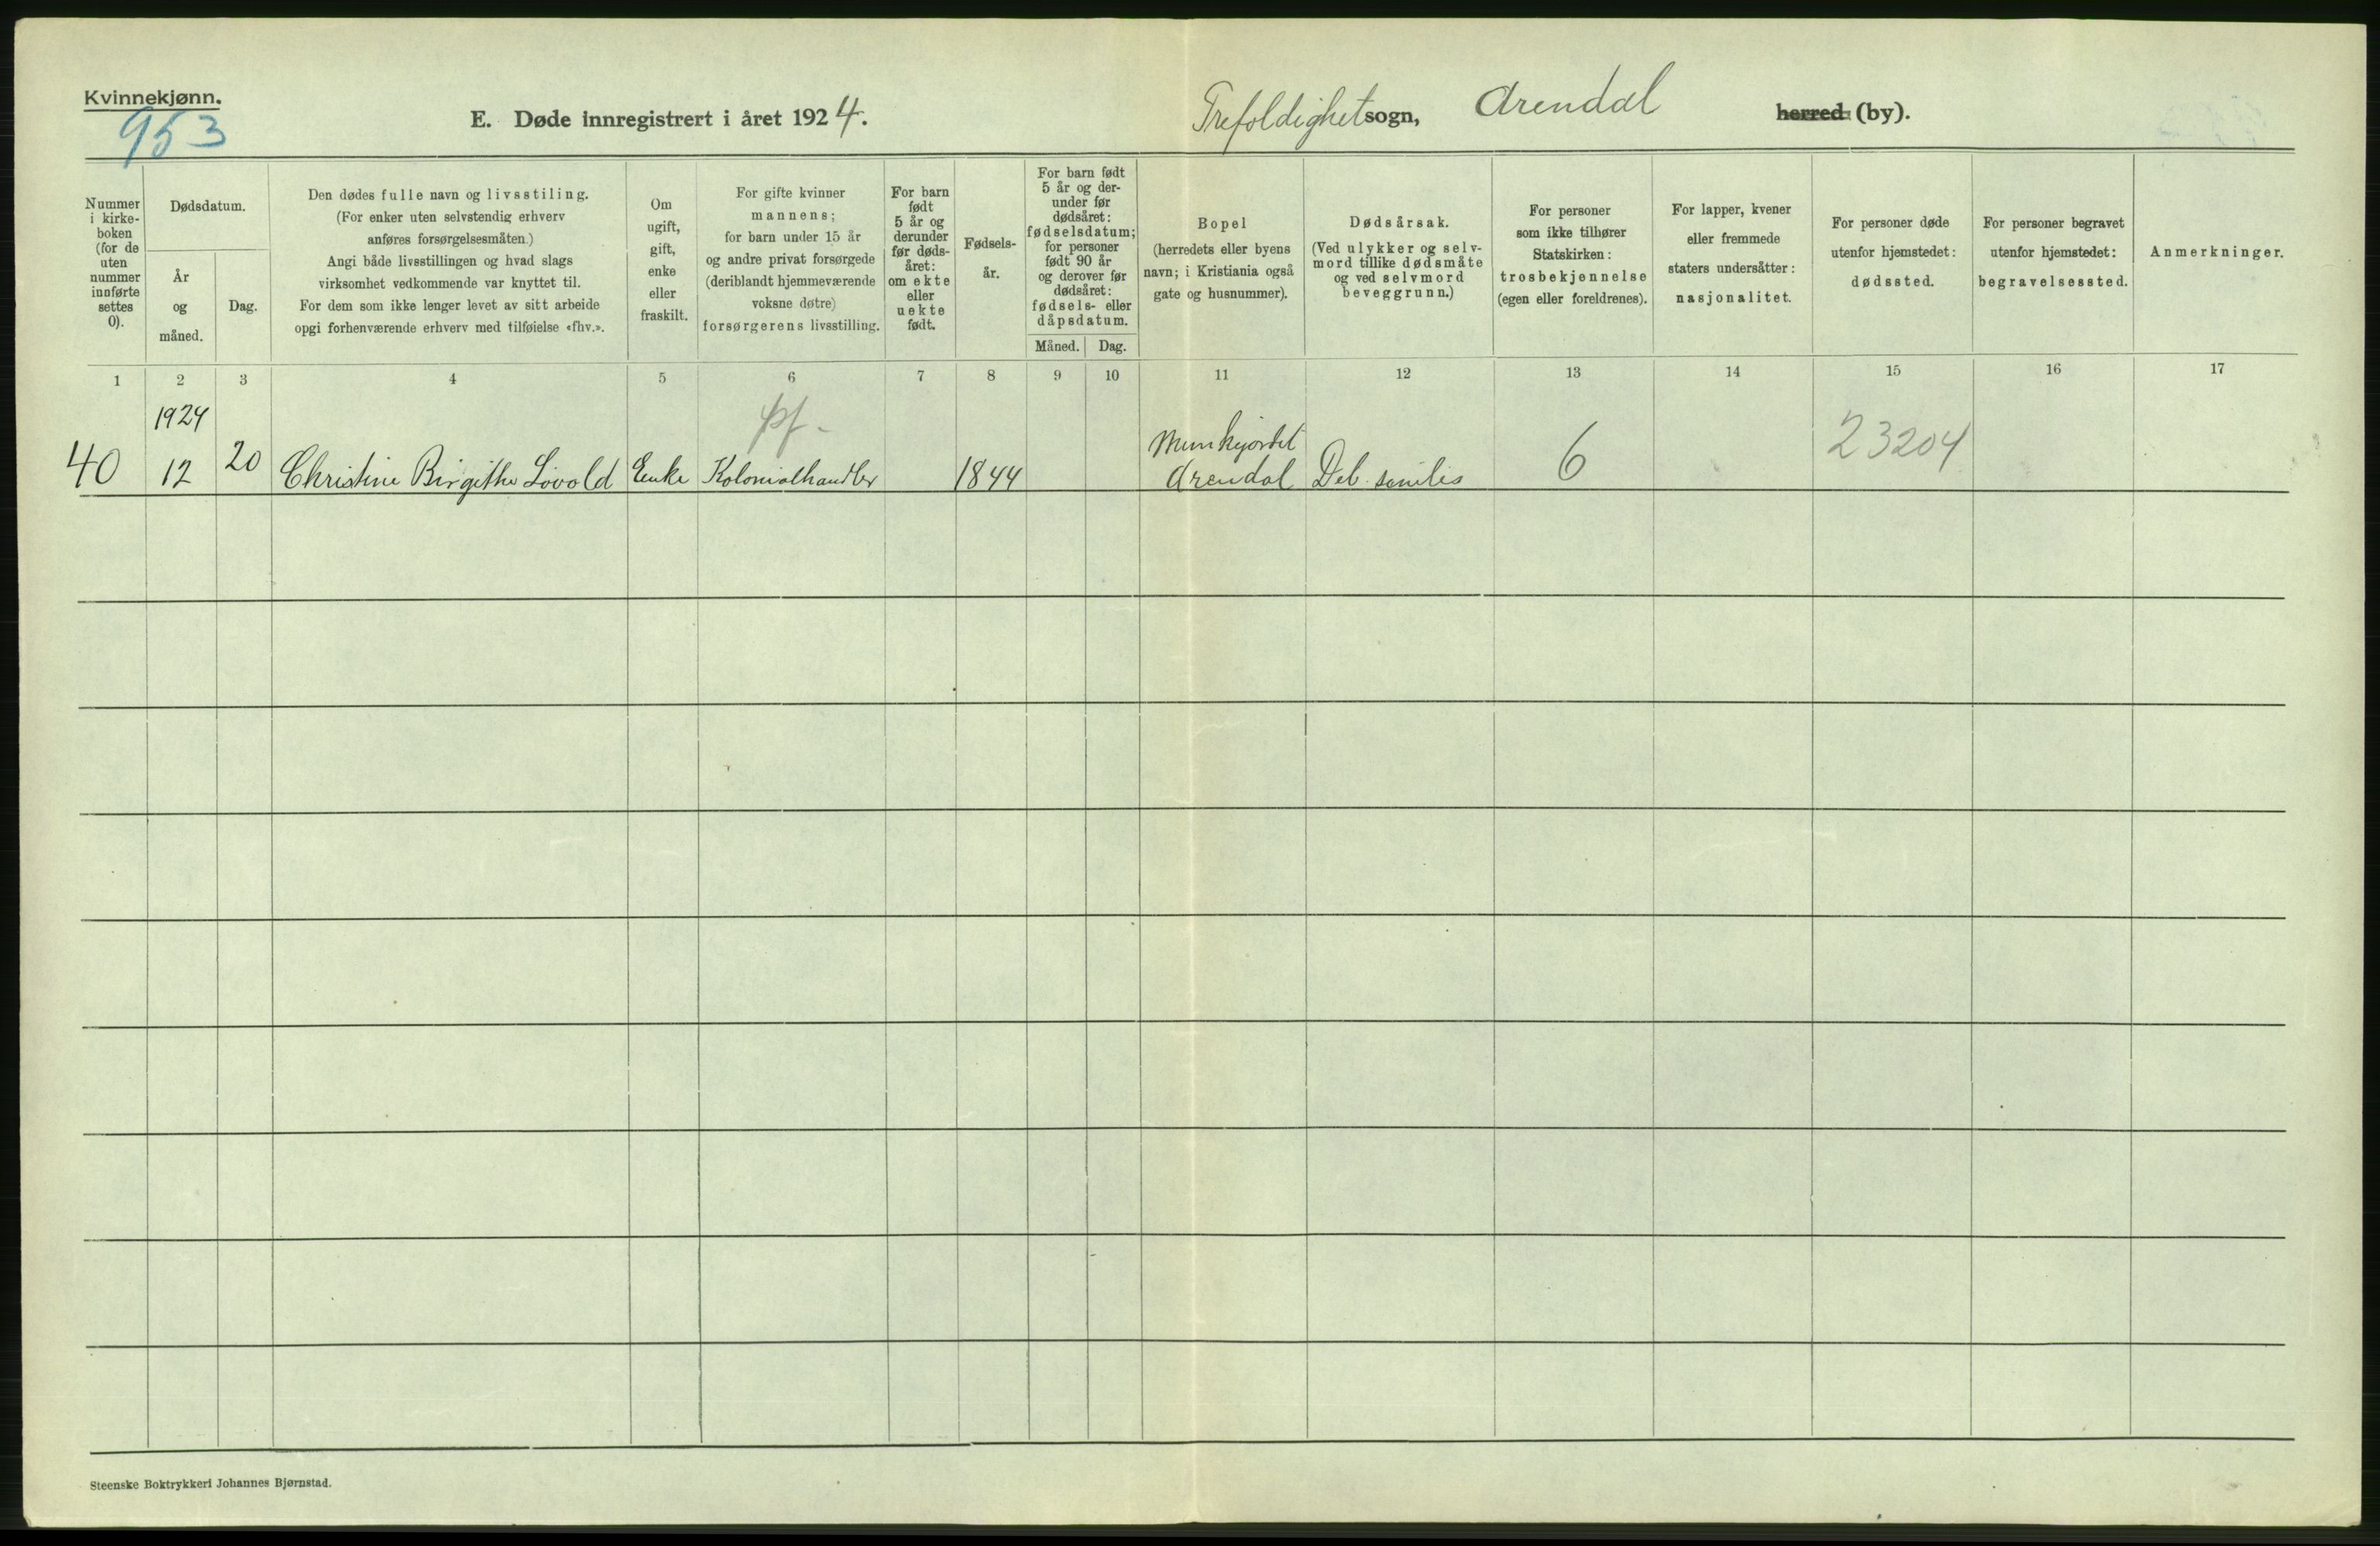 Kvinnekjønn.
953
E. Døde innregistrert i året 1924.
Trefoldighet sogn, Arendal herred (by).
Nummer
i kirke-
boken
(for de
uten
nummer
innførte
settes
0).
Dødsdatum.
År
og
måned.
Dag.
Den dødes fulle navn og livsstiling.
(For enker uten selvstendig erhverv
anføres forsørgelsesmåten.)
Angi både livsstillingen og hvad slags
virksomhet vedkommende var knyttet til.
For dem som ikke lenger levet av sitt arbeide
opgi forhenværende erhverv med tilføielse «fhv.».
Om
ugift,
gift,
enke
eller
fraskilt.
For gifte kvinner
mannens;
for barn under 15 år
og andre privat forsørgede
(deriblandt hjemmeværende
voksne døtre)
forsørgerens livsstilling.
For barn
født
5 år og
derunder
før døds-
året:
om ekte
eller
uekte
født.
Fødsels-
år.
For barn født
5 år og der-
under før
dødsåret:
fødselsdatum;
for personer
født 90 år
og derover før
dødsåret:
fødsels- eller
dåpsdatum.
Måned.
Dag.
Bopel
(herredets eller byens
navn; i Kristiania også
gate og husnummer).
Dødsårsak.
(Ved ulykker og selv-
mord tillike dødsmåte
og ved selvmord
beveggrunn.)
For personer
som ikke tilhører
Statskirken:
trosbekjennelse
(egen eller foreldrenes).
For lapper, kvener
eller fremmede
staters undersåtter:
nasjonalitet.
For personer døde
utenfor hjemstedet:
dødssted.
For personer begravet
utenfor hjemstedet:
begravelsessted.
Anmerkninger.
1 2 3 4 5 6 7 8 9 10 11 12 13 14 15 16 17
1924
40 12 20 Christine Birgithe Lövold Enke Kolonialhandler 1844
Munkejordet
Arendal Deb. senilis 6 23204
Steenske Boktrykkeri Johannes Bjørnstad.